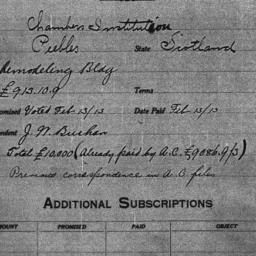 Chambers Institution
Peebles State Scotland
Remodeling Bldg
£913.10.9 Terms
omised Voted Feb 13/13 Date Paid Feb 13/13
ondent J. W. Buchan
Total £10,000 (Already paid by A.C. £9086.9/3)
Previous correspondence in A.C. files
ADDITIONAL SUBSCRIPTIONS
MOUNT PROMISED PAID OBJECT